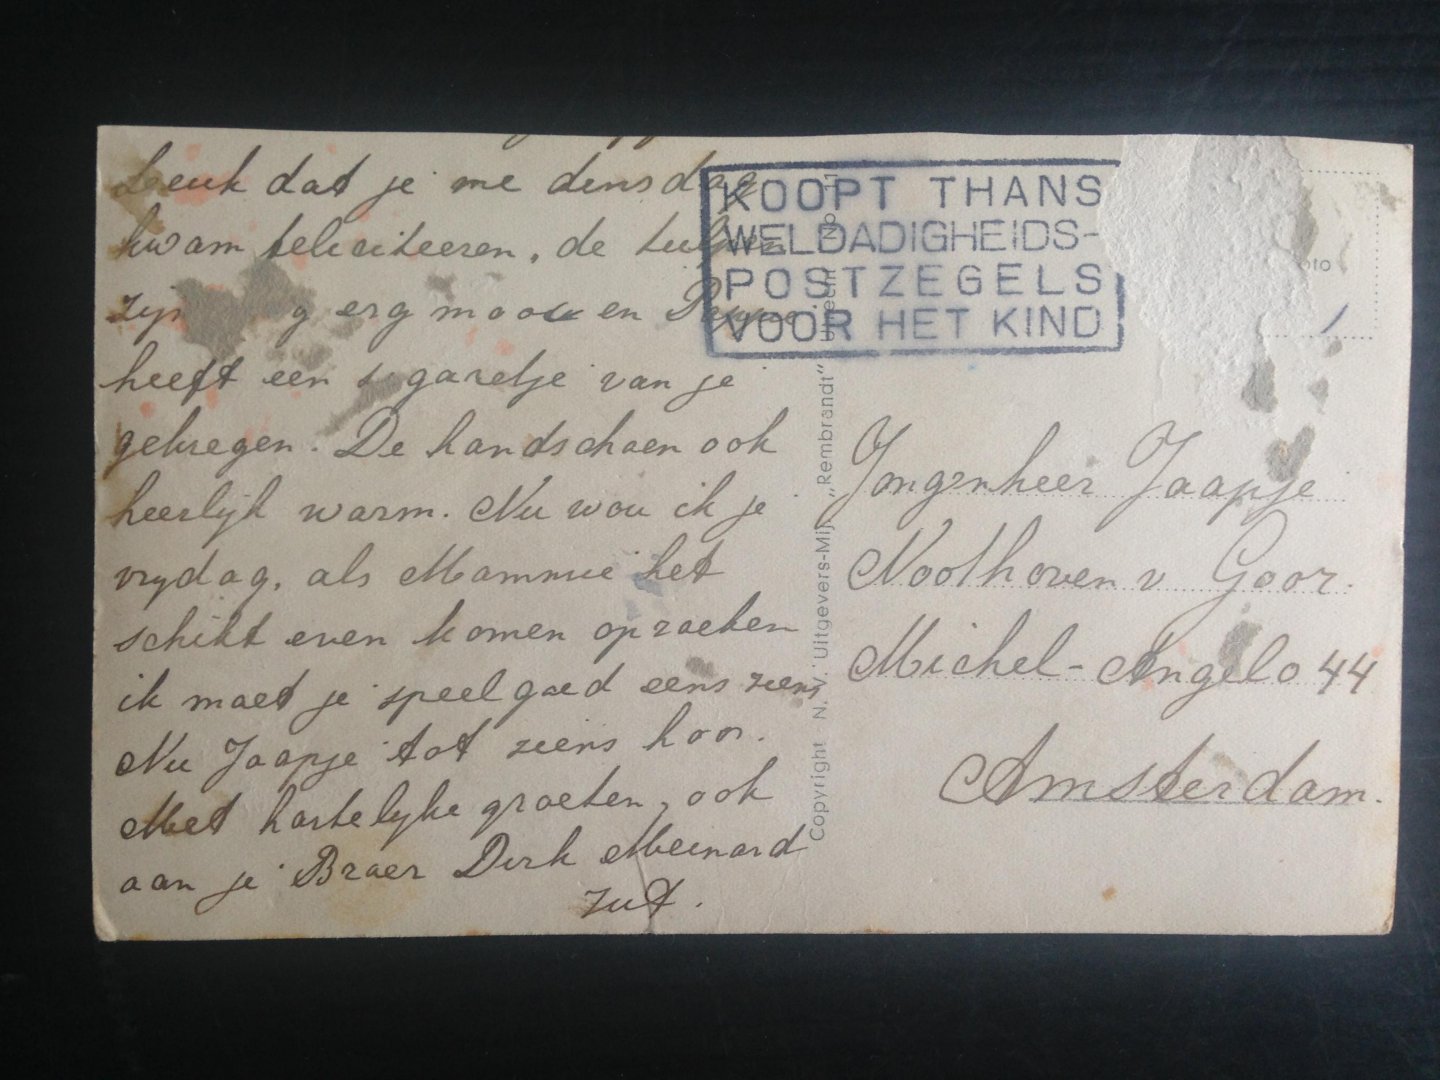 Leuk dat je me dinsdag
kwam feliciteeren, de tulpen
zijn erg mooi en
heeft een sigaretje van je
gekregen. De handschoen ook
heerlijk warm. Nu wou ik je
vrijdag, als Mammie het
schikt even komen opzoeken
ik moet je speelgoed eens zien,
Nu Jaapje tot ziens hoor.
Met hartelijke groeten, ook
aan je Broer Dirk Meinard
KOOPT THANS
WELDADIGHEIDS-
POSTZEGELS
VOOR HET KIND
Copyright N. V. Uitgevers-Mij. „Rembrandt" Utrecht No
Jongenheer Jaapje
Noothoven v Goor.
Michel-Angelo 44
Amsterdam.